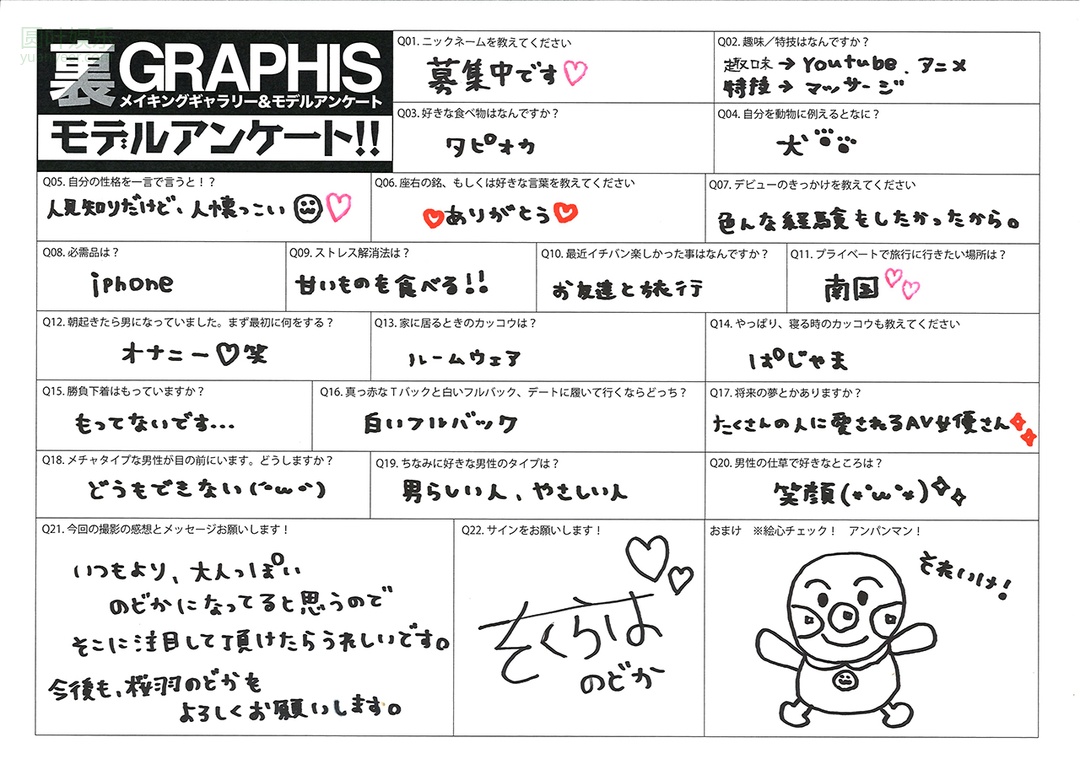 圆叶娱乐
裏GRAPHIS
メイキングギャラリー&モデルアンケート
モデルアンケート!!
Q01. ニックネームを教えてください
募集中です♡
Q02. 趣味／特技はなんですか？
趣味→Youtube、アニメ
特技→マッサージ
Q03. 好きな食べ物はなんですか？
タピオカ
Q04. 自分を動物に例えるとなに？
犬
Q05. 自分の性格を一言で言うと！？
人見知りだけど、人懐っこい♡
Q06. 座右の銘、もしくは好きな言葉を教えてください
♡ありがとう♡
Q07. デビューのきっかけを教えてください
色んな経験をしたかったから。
Q08. 必需品は？
iphone
Q09. ストレス解消法は？
甘いものを食べる!!
Q10. 最近イチバン楽しかった事はなんですか？
お友達と旅行
Q11. プライベートで旅行に行きたい場所は？
南国♡♡
Q12. 朝起きたら男になっていました。まず最初に何をする？
オナニー♡笑
Q13. 家に居るときのカッコウは？
ルームウェア
Q14. やっぱり、寝る時のカッコウも教えてください
ぱじゃま
Q15. 勝負下着はもっていますか？
もってないです...
Q16. 真っ赤なTバックと白いフルバック、デートに履いて行くならどっち？
白いフルバック
Q17. 将来の夢とかありますか？
たくさんの人に愛されるAV女優さん
Q18. メチャタイプな男性が目の前にいます。どうしますか？
どうもできない(´･ω･`)
Q19. ちなみに好きな男性のタイプは？
男らしい人、やさしい人
Q20. 男性の仕草で好きなところは？
笑顔(*'ω'*)✧✧
Q21. 今回の撮影の感想とメッセージお願いします！
いつもより、大人っぽい
のどかになってると思うので
そこに注目して頂けたらうれしいです。
今後も、桜羽のどかを
よろしくお願いします。
Q22. サインをお願いします！
さくらは
のどか
おまけ　※絵心チェック！　アンパンマン！
それいけ！